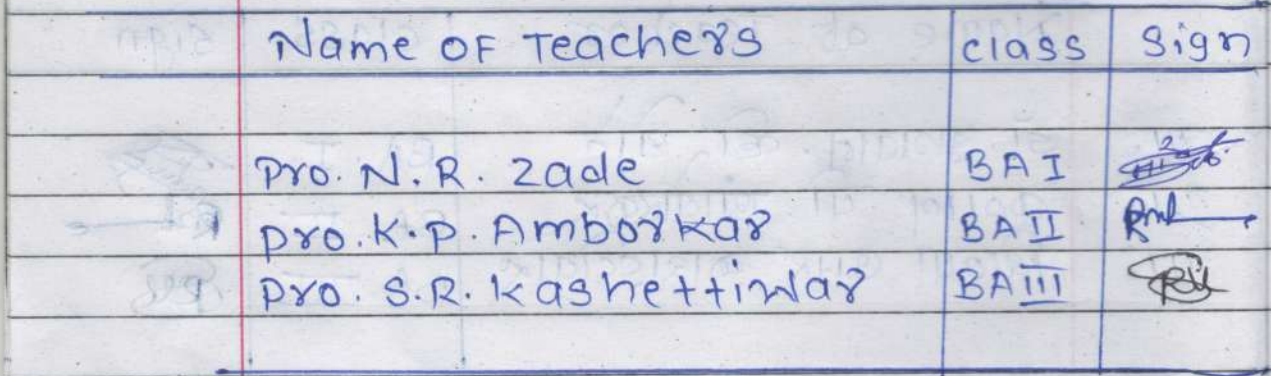 Name OF Teachers class Sign
pro. N. R. Zade BA I
pro. K. P. Amborkar BA II
pro. S. R. Kashettiwar BA III